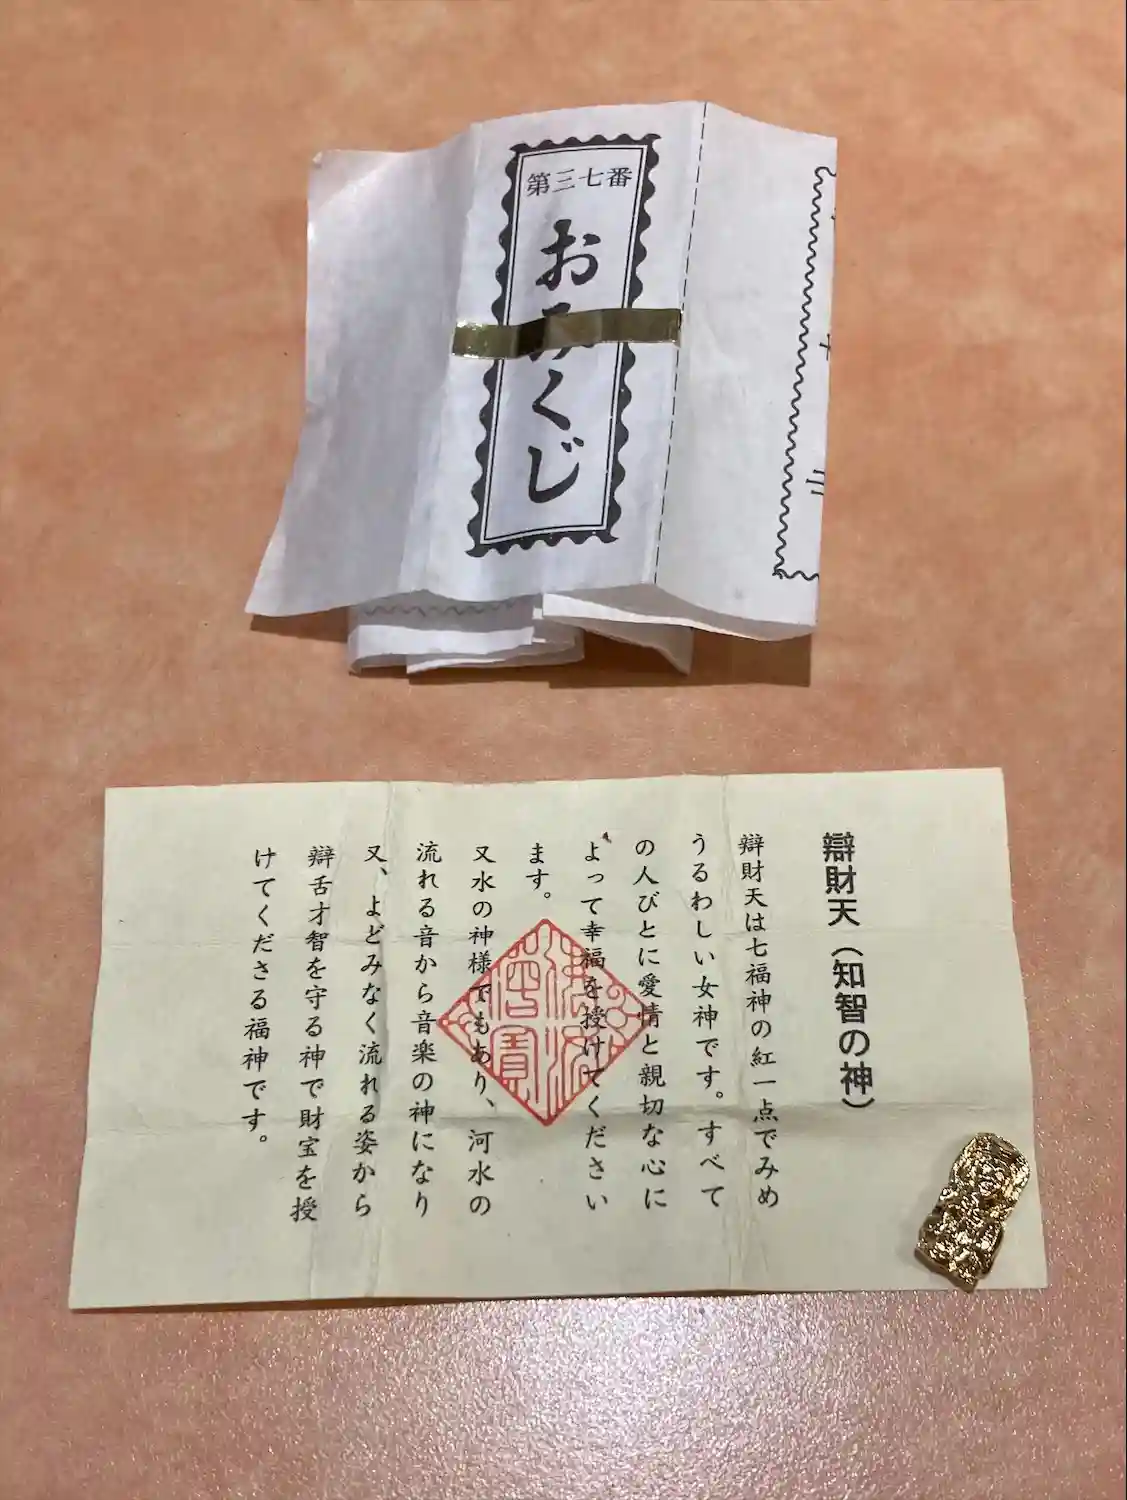 第三七番
おみくじ
辯財天（知智の神）
辯財天は七福神の紅一点でみめ
うるわしい女神です。すべて
の人びとに愛情と親切な心に
よって幸福を授けてください
ます。
又水の神様でもあり、河水の
流れる音から音楽の神になり
又、よどみなく流れる姿から
辯舌才智を守る神で財宝を授
けてくださる福神です。